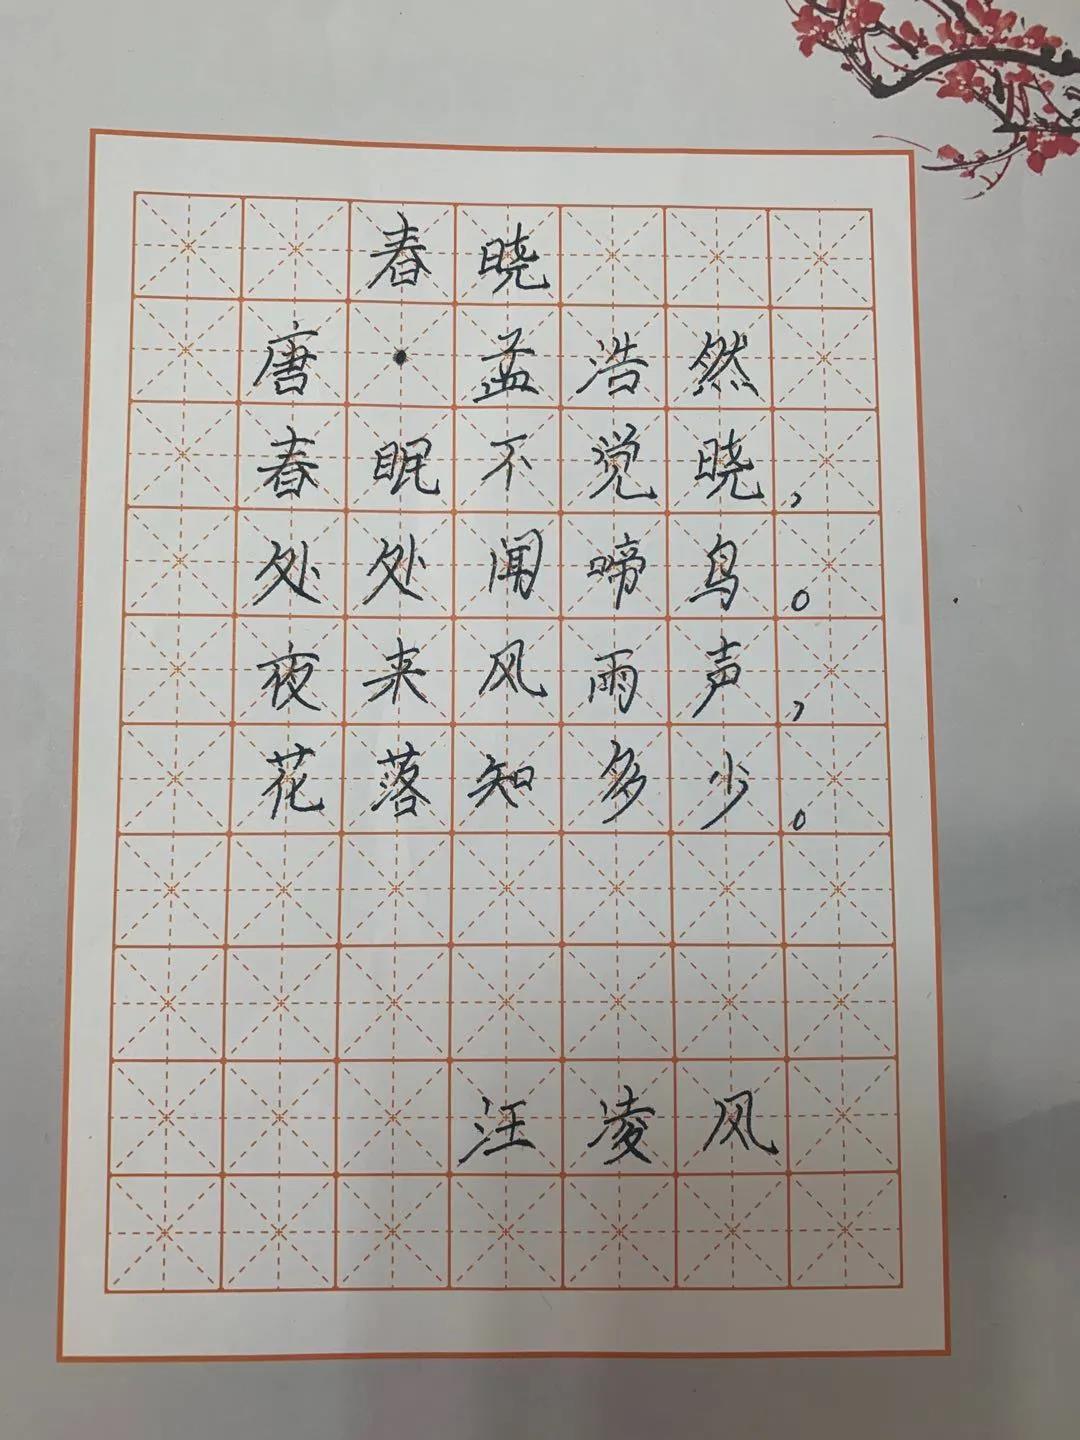 春晓
唐·孟浩然
春眠不觉晓，
处处闻啼鸟。
夜来风雨声，
花落知多少。
汪凌风